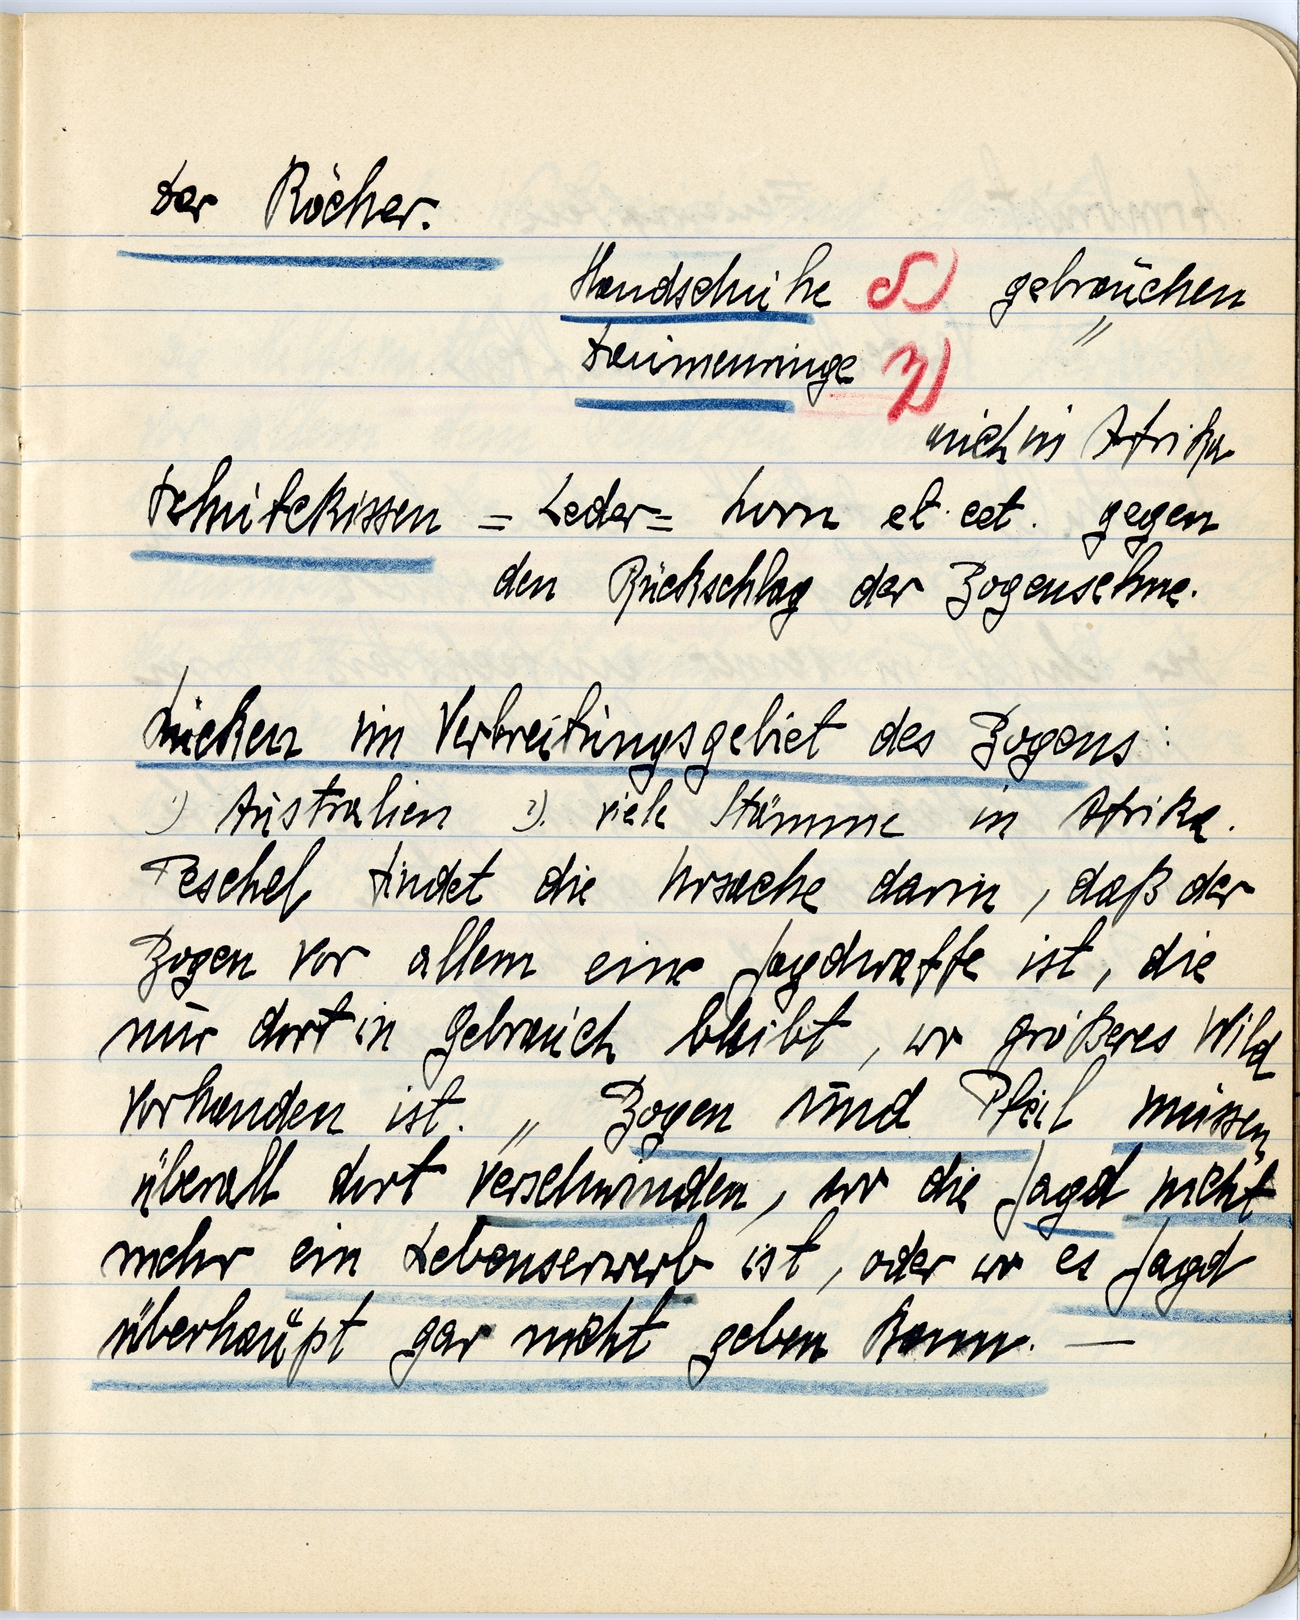 Der Köcher.
Handschuhe 5) gebräuchen
Daumenringe 3) "
auch in Afrika
Schutzkissen = Leder= Horn et. cet. gegen
den Rückschlag der Bogensehne.
Lücken im Verbreitungsgebiet des Bogens:
1) Australien 2). viele Stämme in Afrika.
Peschel findet die Ursache darin, daß der
Bogen vor allem eine Jagdwaffe ist, die
nur dort in Gebrauch bleibt, wo größeres Wild
vorhanden ist. „ Bogen und Pfeil müssen
überall dort verschwinden, wo die Jagd nicht
mehr ein Lebenserwerb ist, oder wo es Jagd
überhaupt gar nicht geben kann. —